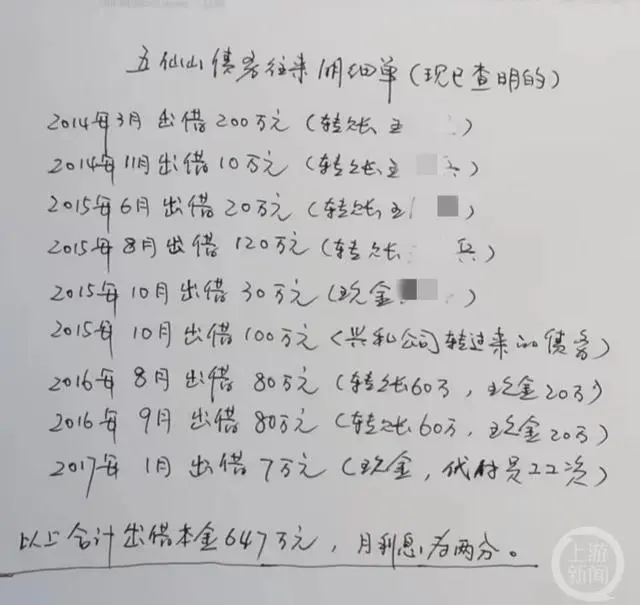 五仙山债务往来明细单(现已查明的)
2014年3月出借200万元(转账王 )
2014年11月出借10万元(转账王 )
2015年6月出借20万元(转账王 )
2015年8月出借120万元(转账 兵)
2015年10月出借30万元(现金 )
2015年10月出借100万元(兴和公司转过来的债务)
2016年8月出借80万元(转账60万,现金20万)
2016年9月出借80万元(转账60万,现金20万)
2017年1月出借7万元(现金,代付员工工资)
以上合计出借本金647万元,月利息为两分。
上游新闻